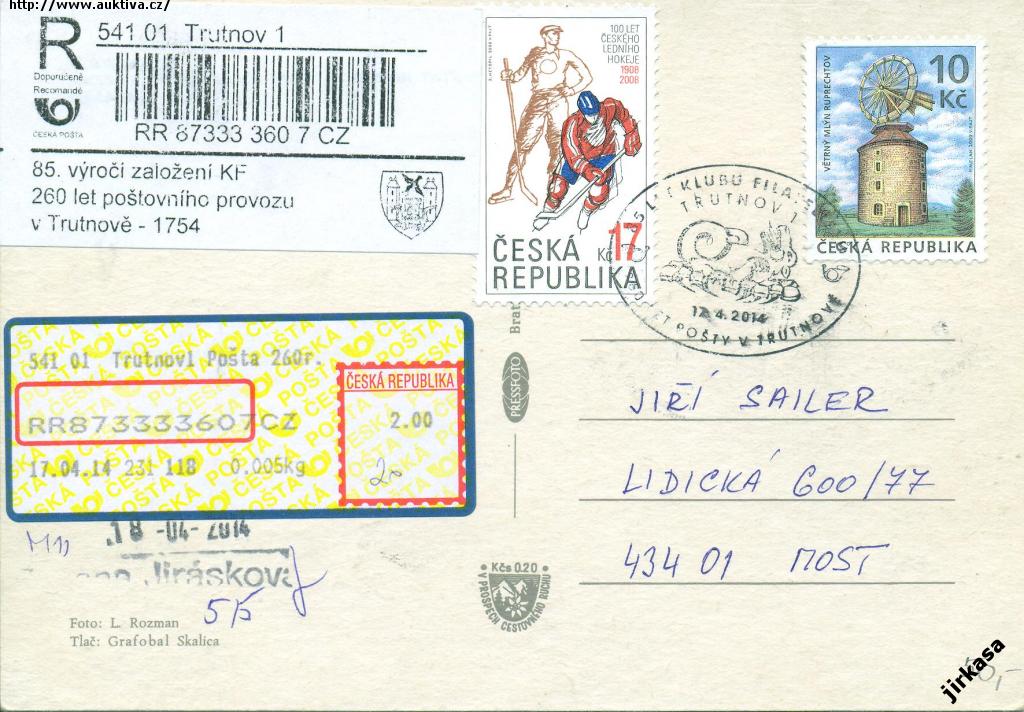 http://www.auktiva.cz/
R
Doporučeně
Recomandé
ČESKÁ POŠTA
541 01 Trutnov 1
RR 87333 360 7 CZ
85. výročí založení KF
260 let poštovního provozu
v Trutnově - 1754
100 LET
ČESKÉHO
LEDNÍHO
HOKEJE
1908
2008
17
Kč
ČESKÁ
REPUBLIKA
VĚTRNÝ MLÝN RUPRECHTOV
10
Kč
ČESKÁ REPUBLIKA
85 LET KLUBU FILATE
TRUTNOV 1
17.4.2014
260 LET POŠTY V TRUTNOVĚ
541 01 Trutnov1 Pošta 260r.
RR873333607CZ
17.04.14 231 118 0.005kg
ČESKÁ REPUBLIKA
2.00
20
18 -04- 2014
Jirásková
Foto: L. Rozman
Tlač: Grafobal Skalica
Brat
PRESSFOTO
Kčs 0.20
V PROSPĚCH CESTOVNÉHO RUCHU
JIŘÍ SAILER
LIDICKÁ 600/77
434 01 MOST
jirkasa